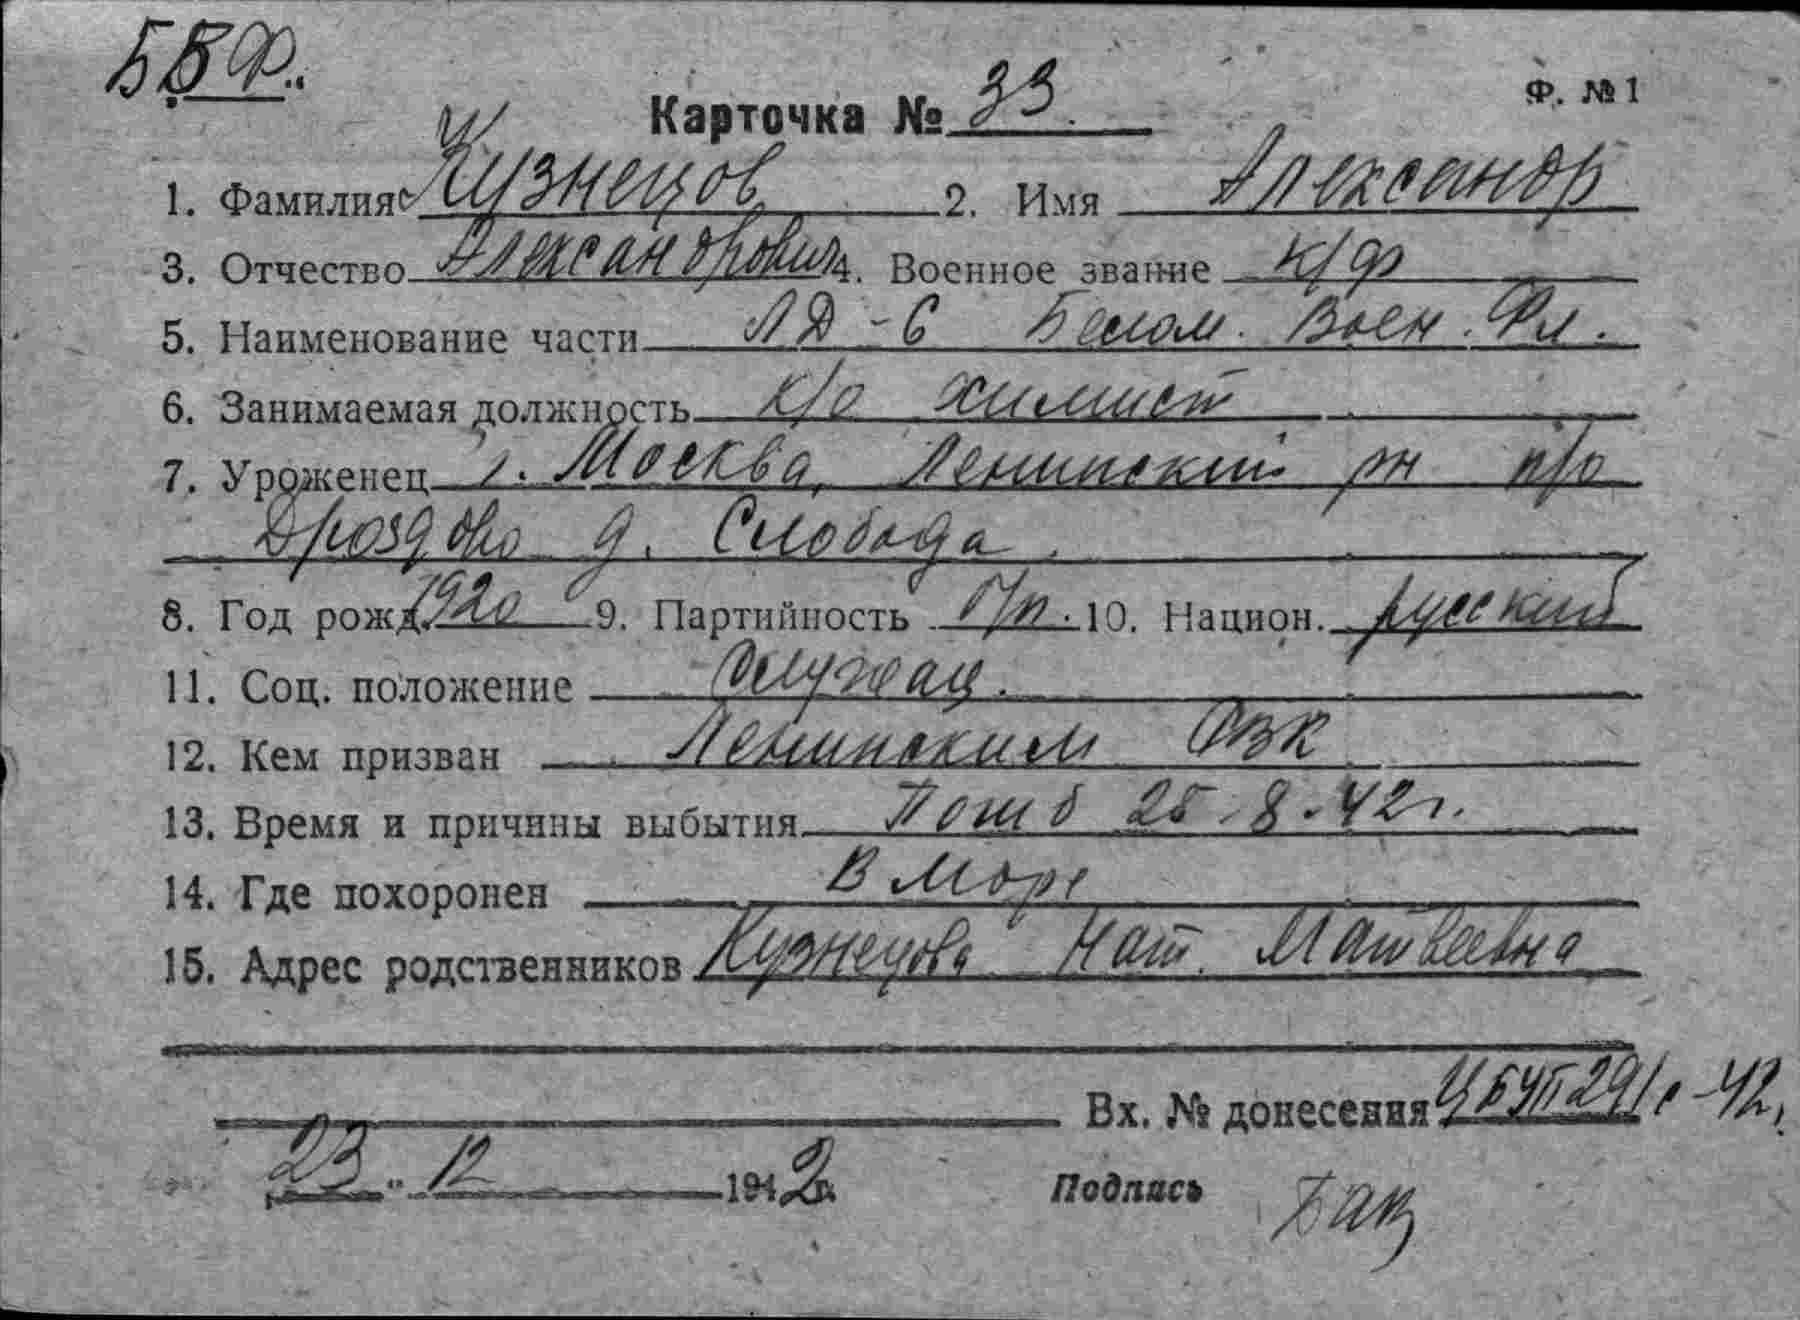 БВФ.
Ф. №1
Карточка № 33.
1. Фамилия Кузнецов 2. Имя Александр
3. Отчество Александрович 4. Военное звание к/ф
5. Наименование части ЛД-6 Белом. Воен. Фл.
6. Занимаемая должность к/о химист
7. Уроженец г. Москва, Ленинский рн п/о
Дроздово д. Слобода.
8. Год рожд. 1920 9. Партийность б/п. 10. Национ. русский
11. Соц. положение служащ.
12. Кем призван Ленинским РВК
13. Время и причины выбытия Погиб 25.8.42 г.
14. Где похоронен в море
15. Адрес родственников Кузнецова Нат. Матвеевна
Вх. № донесения ЦБУП 291с-42.
„23" 12 1942 г. Подпись